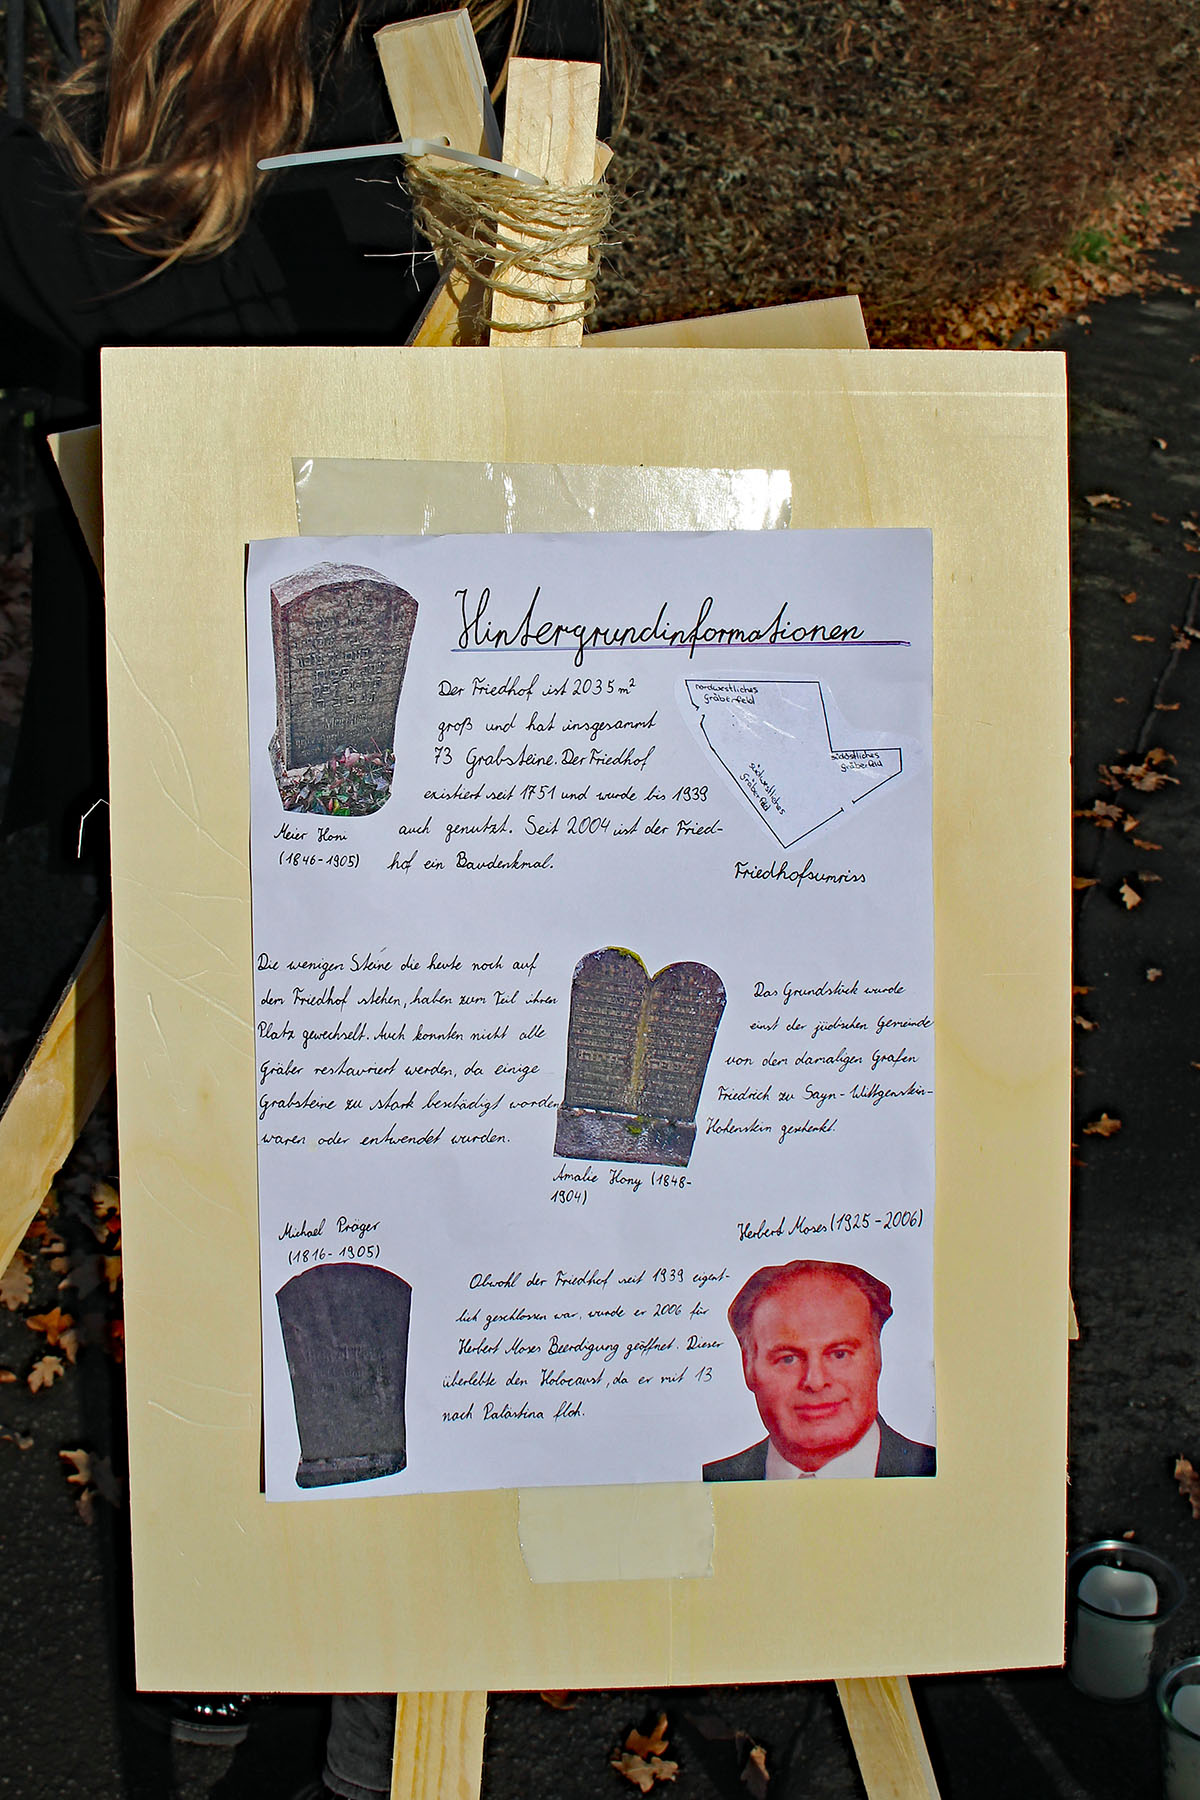 Hintergrundinformationen
Der Friedhof ist 2035 m²
groß und hat insgesammt
73 Grabsteine. Der Friedhof
existiert seit 1751 und wurde bis 1939
auch genutzt. Seit 2004 ist der Fried-
hof ein Baudenkmal.
Meier Honi
(1846-1905)
nordwestliches
gräberfeld
südöstliches
gräberfeld
südwestliches
Gräberfeld
Friedhofsumriss
Die wenigen Steine die heute noch auf
dem Friedhof stehen, haben zum Teil ihren
Platz gewechselt. Auch konnten nicht alle
Gräber restauriert werden, da einige
Grabsteine zu stark beschädigt worden
waren oder entwendet wurden.
Amalie Hony (1848-
1904)
Das Grundstück wurde
einst der jüdischen Gemeinde
von dem damaligen Grafen
Friedrich zu Sayn-Wittgenstein-
Hohenstein geschenkt.
Michael Präger
(1816-1905)
Obwohl der Friedhof seit 1939 eigent-
lich geschlossen war, wurde er 2006 für
Herbert Moses Beerdigung geöffnet. Dieser
überlebte den Holocaust, da er mit 13
nach Palästina floh.
Herbert Moses (1925-2006)